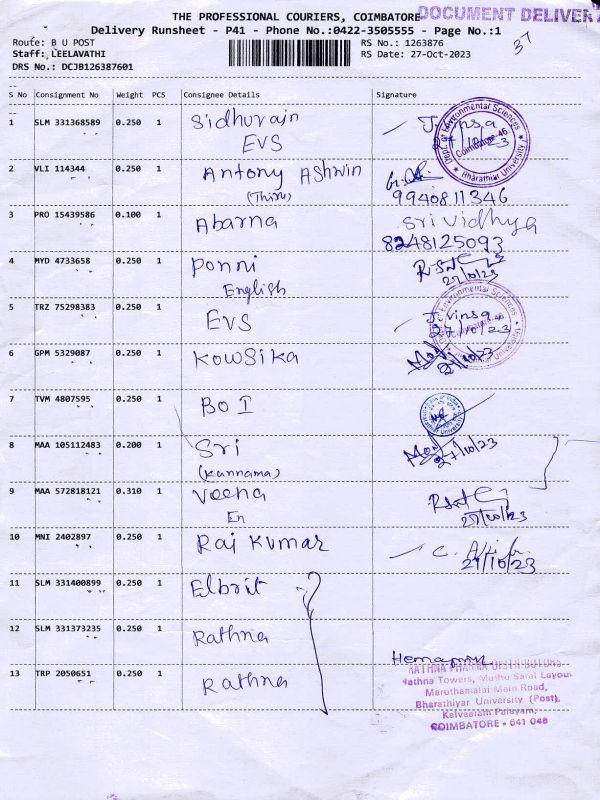 THE PROFESSIONAL COURIERS, COIMBATORE
DOCUMENT DELIVERY
Delivery Runsheet - P41 - Phone No.:0422-3505555 - Page No.:1
37
Route: B U POST
Staff: LEELAVATHI
DRS No.: DCJB126387601
RS No.: 1263876
RS Date: 27-Oct-2023
S No Consignment No Weight PCS Consignee Details Signature
1 SLM 331368589 0.250 1 Sidhurajn
EVS
J. Vinsa
27/10/23
Dept. of Environmental Sciences
Coimbatore-46
Bharathiar University
2 VLI 114344 0.250 1 Antony Ashwin
(Thiru)
9940811346
3 PRO 15439586 0.100 1 Abarna
Srividhya
8248125093
4 MYD 4733658 0.250 1 Ponni
English
27/10/23
5 TRZ 75298383 0.250 1 EVS
J. Vinsa
27/10/23
Environmental Sciences
Coimbatore-46
Bharathiar University
6 GPM 5329087 0.250 1 Kowsika
27/10/23
7 TVM 4807595 0.250 1 BO I
8 MAA 105112483 0.200 1 Sri
(Kannama)
27/10/23
9 MAA 572818121 0.310 1 Veena
En
27/10/23
10 MNI 2402897 0.250 1 Raj Kumar
27/10/23
11 SLM 331400899 0.250 1 Elbrit
12 SLM 331373235 0.250 1 Rathna
13 TRP 2050651 0.250 1 Rathna
RATHNA PHARMA DISTRIBUTORS
Rathna Towers, Muthu Saral Layout
Maruthamalai Main Road,
Bharathiyar University (Post),
Kalveeram Palayam,
COIMBATORE - 641 046